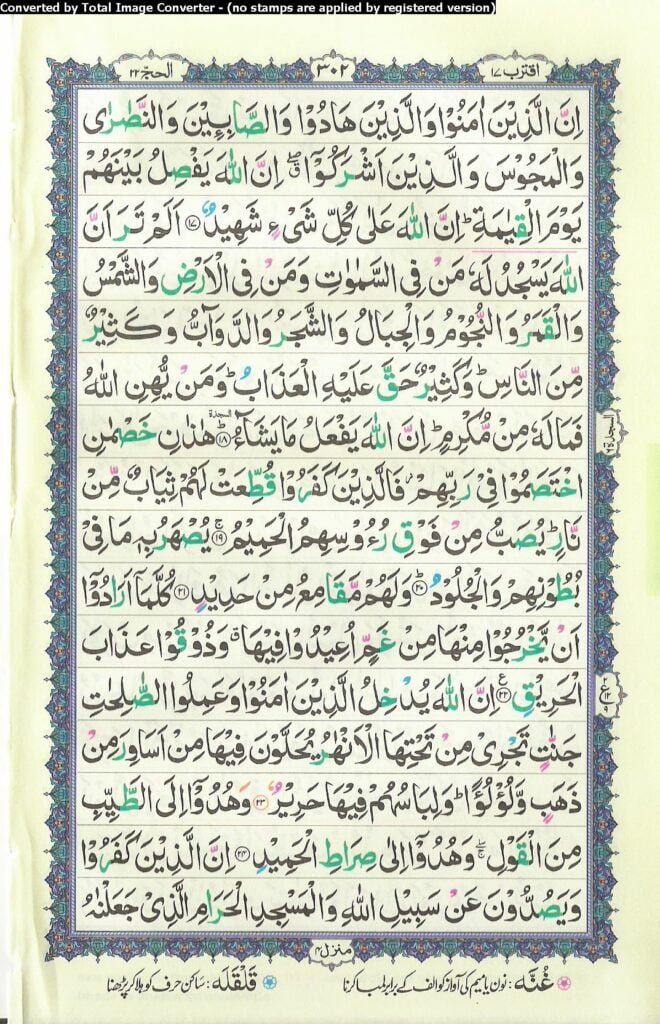 Converted by Total Image Converter - (no stamps are applied by registered version)
اقترب ١٧
٣٠٢
الحج ٢٢
اِنَّ الَّذِيْنَ اٰمَنُوْا وَالَّذِيْنَ هَادُوْا وَالصَّابِـِٕيْنَ وَالنَّصٰرٰى
وَالْمَجُوْسَ وَالَّذِيْنَ اَشْرَكُوْۤا ۖق اِنَّ اللّٰهَ يَفْصِلُ بَيْنَهُمْ
يَوْمَ الْقِيٰمَةِ ؕ اِنَّ اللّٰهَ عَلٰى كُلِّ شَيْءٍ شَهِيْدٌ ﴿۱۷﴾ اَلَمْ تَرَ اَنَّ
اللّٰهَ يَسْجُدُ لَهٗ مَنْ فِي السَّمٰوٰتِ وَمَنْ فِي الْاَرْضِ وَالشَّمْسُ
وَالْقَمَرُ وَالنُّجُوْمُ وَالْجِبَالُ وَالشَّجَرُ وَالدَّوَآبُّ وَكَثِيْرٌ
مِّنَ النَّاسِ ؕ وَكَثِيْرٌ حَقَّ عَلَيْهِ الْعَذَابُ ؕ وَمَنْ يُّهِنِ اللّٰهُ
فَمَا لَهٗ مِنْ مُّكْرِمٍ ؕ اِنَّ اللّٰهَ يَفْعَلُ مَا يَشَآءُ ﴿۱۸﴾ السجدة هٰذٰنِ خَصْمٰنِ
اخْتَصَمُوْا فِيْ رَبِّهِمْ ؗ فَالَّذِيْنَ كَفَرُوْا قُطِّعَتْ لَهُمْ ثِيَابٌ مِّنْ
نَّارٍ ؕ يُصَبُّ مِنْ فَوْقِ رُءُوْسِهِمُ الْحَمِيْمُ ﴿۱۹﴾ۚ يُصْهَرُ بِهٖ مَا فِيْ
بُطُوْنِهِمْ وَالْجُلُوْدُ ﴿۲۰﴾ؕ وَلَهُمْ مَّقَامِعُ مِنْ حَدِيْدٍ ﴿۲۱﴾ كُلَّمَاۤ اَرَادُوْۤا
اَنْ يَّخْرُجُوْا مِنْهَا مِنْ غَمٍّ اُعِيْدُوْا فِيْهَا ۗ وَذُوْقُوْا عَذَابَ
الْحَرِيْقِ ﴿۲۲﴾ع اِنَّ اللّٰهَ يُدْخِلُ الَّذِيْنَ اٰمَنُوْا وَعَمِلُوا الصّٰلِحٰتِ
جَنّٰتٍ تَجْرِيْ مِنْ تَحْتِهَا الْاَنْهٰرُ يُحَلَّوْنَ فِيْهَا مِنْ اَسَاوِرَ مِنْ
ذَهَبٍ وَّلُؤْلُؤًا ؕ وَلِبَاسُهُمْ فِيْهَا حَرِيْرٌ ﴿۲۳﴾ وَهُدُوْۤا اِلَى الطَّيِّبِ
مِنَ الْقَوْلِ ۖۚ وَهُدُوْۤا اِلٰى صِرَاطِ الْحَمِيْدِ ﴿۲۴﴾ اِنَّ الَّذِيْنَ كَفَرُوْا
وَيَصُدُّوْنَ عَنْ سَبِيْلِ اللّٰهِ وَالْمَسْجِدِ الْحَرَامِ الَّذِيْ جَعَلْنٰهُ
منزل ٤
غُنَّہ: نون یا میم کی آواز کو الف کے برابر لمبا کرنا
قَلْقَلَہ: ساکن حرف کو ہلا کر پڑھنا